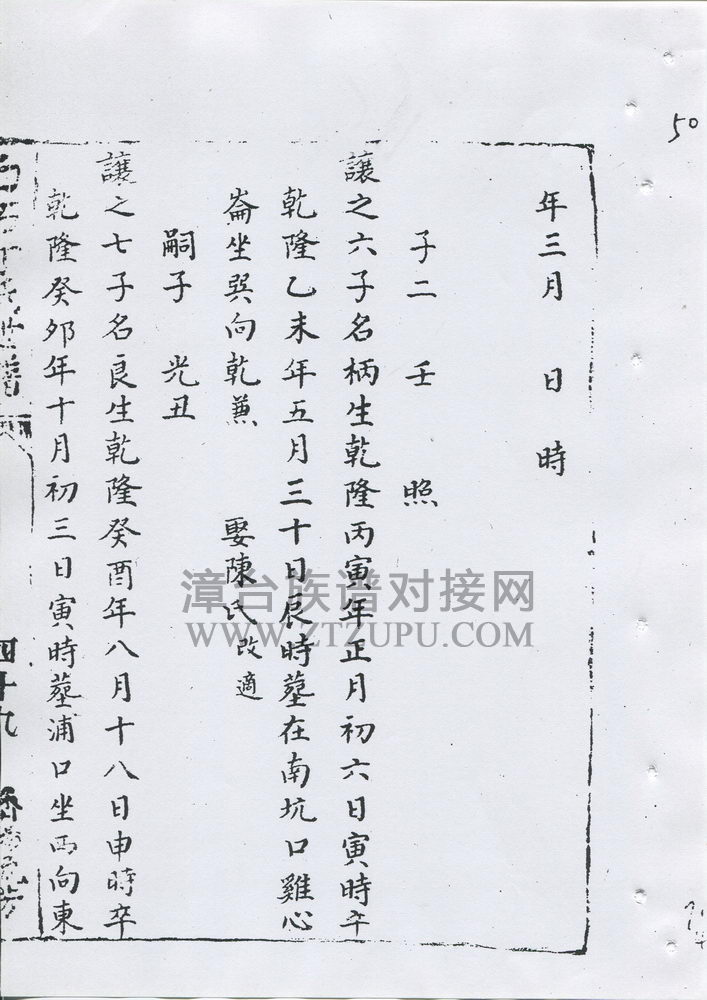 50
年三月　日　時
子二　壬　照
讓之六子名柄生乾隆丙寅年正月初六日寅時卒
乾隆乙未年五月三十日辰時墓在南坑口雞心
崙坐巽向乾兼　娶陳氏改適
嗣子　光丑
讓之七子名良生乾隆癸酉年八月十八日申時卒
乾隆癸卯年十月初三日寅時墓浦口坐西向東
四十九
漳台族谱对接网
WWW.ZTZUPU.COM